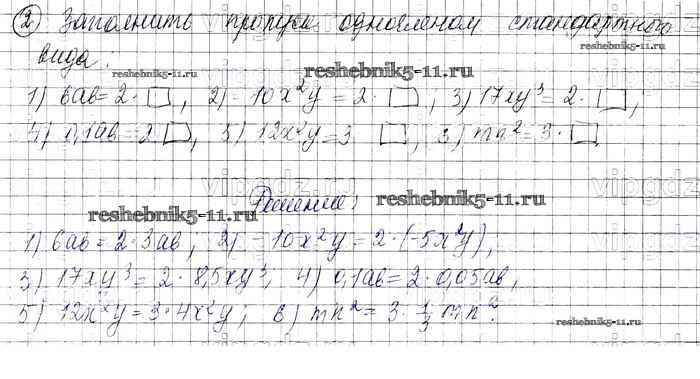 2 Заполнить пропуск одночленом стандартного
вида:
reshebnik5-11.ru
reshebnik5-11.ru
reshebnik5-11.ru
1) 6ab = 2 · □, 2) -10x²y = 2 · □, 3) 17xy³ = 2 · □,
4) 0,1ab = 2 □, 5) 12x²y = 3 □, 6) mn² = 3 · □
Решение:
reshebnik5-11.ru
reshebnik5-11.ru
1) 6ab = 2 · 3ab, 2) -10x²y = 2 · (-5x²y),
3) 17xy³ = 2 · 8,5xy³, 4) 0,1ab = 2 · 0,05ab,
5) 12x²y = 3 · 4x²y, 6) mn² = 3 · 1/3 mn².
reshebnik5-11.ru